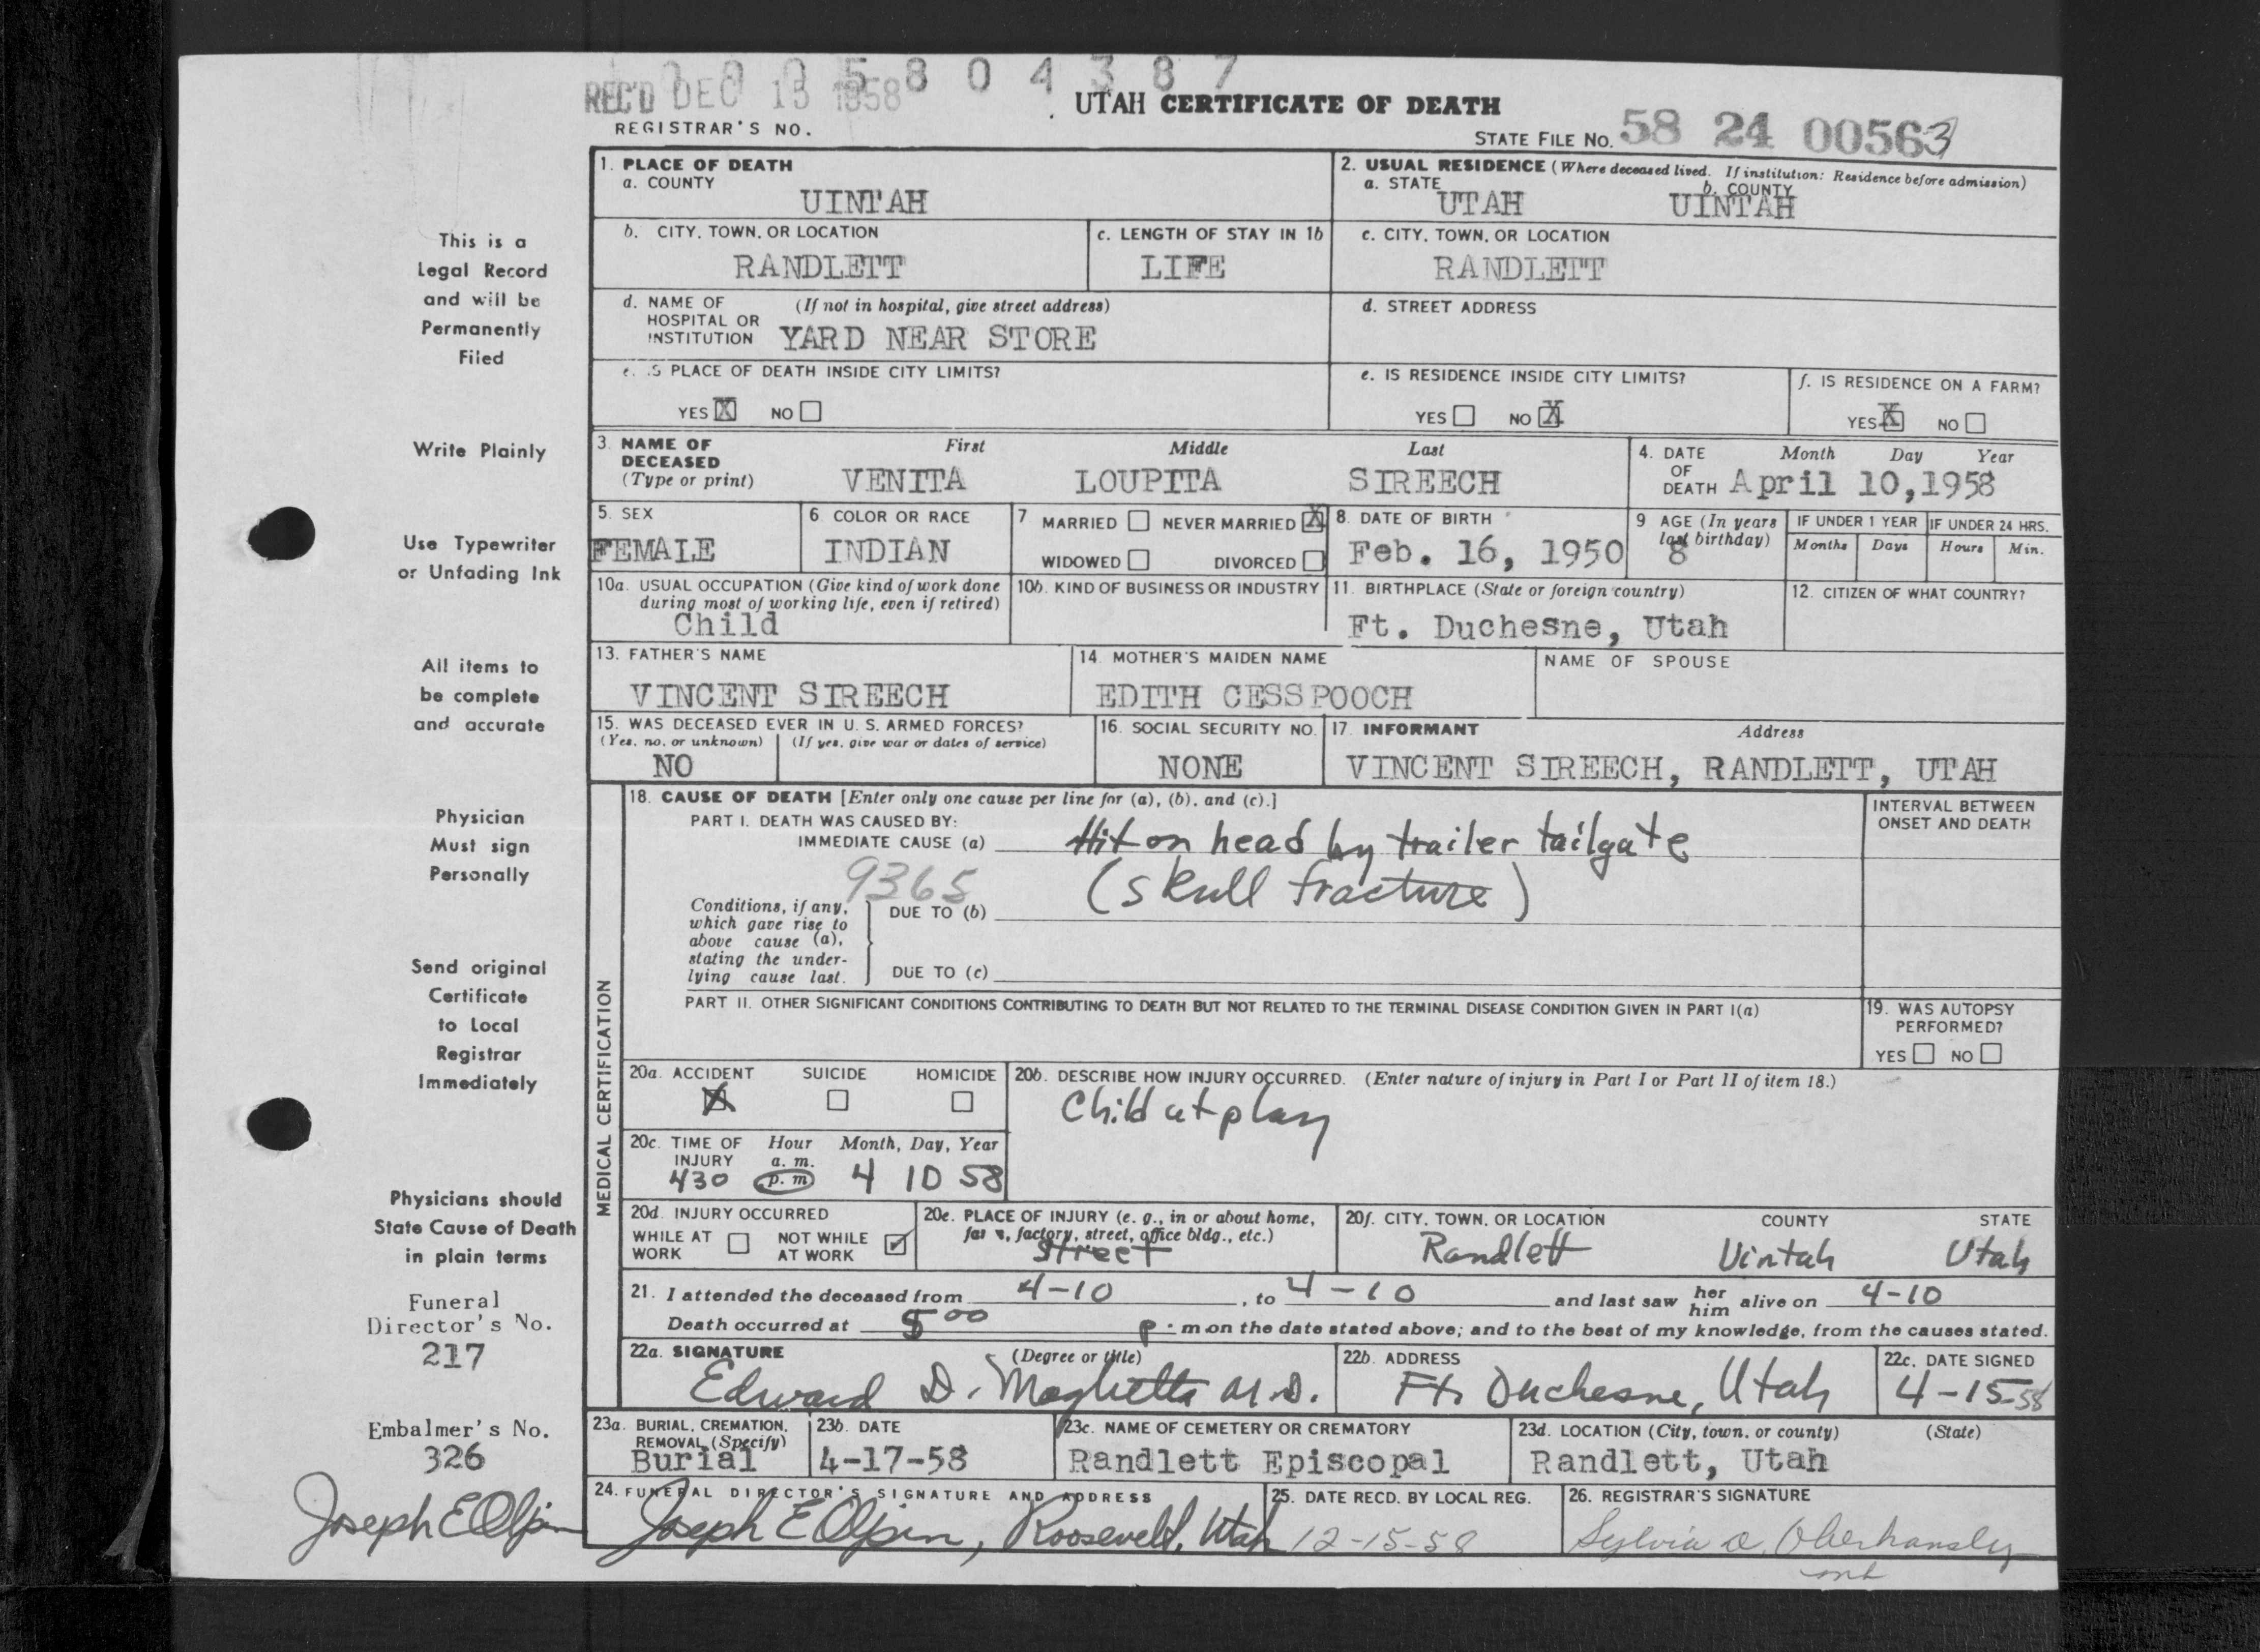 1 0 0 5 8 0 4 3 8 7
REC'D DEC 15 1958
UTAH CERTIFICATE OF DEATH
REGISTRAR'S NO.
STATE FILE NO. 58 24 00563
1. PLACE OF DEATH
a. COUNTY
UINTAH
2. USUAL RESIDENCE (Where deceased lived. If institution: Residence before admission)
a. STATE b. COUNTY
UTAH UINTAH
b. CITY, TOWN, OR LOCATION
RANDLETT
c. LENGTH OF STAY IN 1b
LIFE
c. CITY, TOWN, OR LOCATION
RANDLETT
d. NAME OF (If not in hospital, give street address)
HOSPITAL OR
INSTITUTION YARD NEAR STORE
d. STREET ADDRESS
e. IS PLACE OF DEATH INSIDE CITY LIMITS?
YES X NO
e. IS RESIDENCE INSIDE CITY LIMITS?
YES NO X
f. IS RESIDENCE ON A FARM?
YES X NO
3. NAME OF DECEASED (Type or print)
First Middle Last
VENITA LOUPITA SIREECH
4. DATE OF DEATH
Month Day Year
April 10, 1958
5. SEX
FEMALE
6. COLOR OR RACE
INDIAN
7 MARRIED NEVER MARRIED X
WIDOWED DIVORCED
8. DATE OF BIRTH
Feb. 16, 1950
9 AGE (In years last birthday)
8
IF UNDER 1 YEAR
Months Days
IF UNDER 24 HRS.
Hours Min.
10a. USUAL OCCUPATION (Give kind of work done
during most of working life, even if retired)
Child
10b. KIND OF BUSINESS OR INDUSTRY
11. BIRTHPLACE (State or foreign country)
Ft. Duchesne, Utah
12. CITIZEN OF WHAT COUNTRY?
13. FATHER'S NAME
VINCENT SIREECH
14. MOTHER'S MAIDEN NAME
EDITH CESSPOOCH
NAME OF SPOUSE
15. WAS DECEASED EVER IN U. S. ARMED FORCES?
(Yes, no, or unknown) (If yes, give war or dates of service)
NO
16. SOCIAL SECURITY NO.
NONE
17. INFORMANT Address
VINCENT SIREECH, RANDLETT, UTAH
MEDICAL CERTIFICATION
18. CAUSE OF DEATH [Enter only one cause per line for (a), (b), and (c).]
PART I. DEATH WAS CAUSED BY:
IMMEDIATE CAUSE (a) Hit on head by trailer tailgate
9365 (skull fracture)
Conditions, if any,
which gave rise to
above cause (a),
stating the under-
lying cause last.
DUE TO (b)
DUE TO (c)
INTERVAL BETWEEN
ONSET AND DEATH
PART II. OTHER SIGNIFICANT CONDITIONS CONTRIBUTING TO DEATH BUT NOT RELATED TO THE TERMINAL DISEASE CONDITION GIVEN IN PART I(a)
19. WAS AUTOPSY
PERFORMED?
YES NO
20a. ACCIDENT SUICIDE HOMICIDE
X
20b. DESCRIBE HOW INJURY OCCURRED. (Enter nature of injury in Part I or Part II of item 18.)
Child at play
20c. TIME OF INJURY
Hour Month, Day, Year
a. m.
430 p. m 4 10 58
20d. INJURY OCCURRED
WHILE AT WORK NOT WHILE AT WORK ✓
20e. PLACE OF INJURY (e. g., in or about home,
farm, factory, street, office bldg., etc.)
Street
20f. CITY, TOWN, OR LOCATION COUNTY STATE
Randlett Uintah Utah
21. I attended the deceased from 4-10, to 4-10 and last saw her him alive on 4-10
Death occurred at 5 00 p. m on the date stated above; and to the best of my knowledge, from the causes stated.
22a. SIGNATURE (Degree or title)
Edward D. Maghetta M.D.
22b. ADDRESS
Ft. Duchesne, Utah
22c. DATE SIGNED
4-15-58
23a. BURIAL, CREMATION,
REMOVAL (Specify)
Burial
23b. DATE
4-17-58
23c. NAME OF CEMETERY OR CREMATORY
Randlett Episcopal
23d. LOCATION (City, town, or county) (State)
Randlett, Utah
24. FUNERAL DIRECTOR'S SIGNATURE AND ADDRESS
Joseph E Olpin, Roosevelt, Utah
25. DATE RECD. BY LOCAL REG.
12-15-58
26. REGISTRAR'S SIGNATURE
Sylvia O. Oberhansley
This is a
Legal Record
and will be
Permanently
Filed
Write Plainly
Use Typewriter
or Unfading Ink
All items to
be complete
and accurate
Physician
Must sign
Personally
Send original
Certificate
to Local
Registrar
Immediately
Physicians should
State Cause of Death
in plain terms
Funeral
Director's No.
217
Embalmer's No.
326
Joseph E Olpin